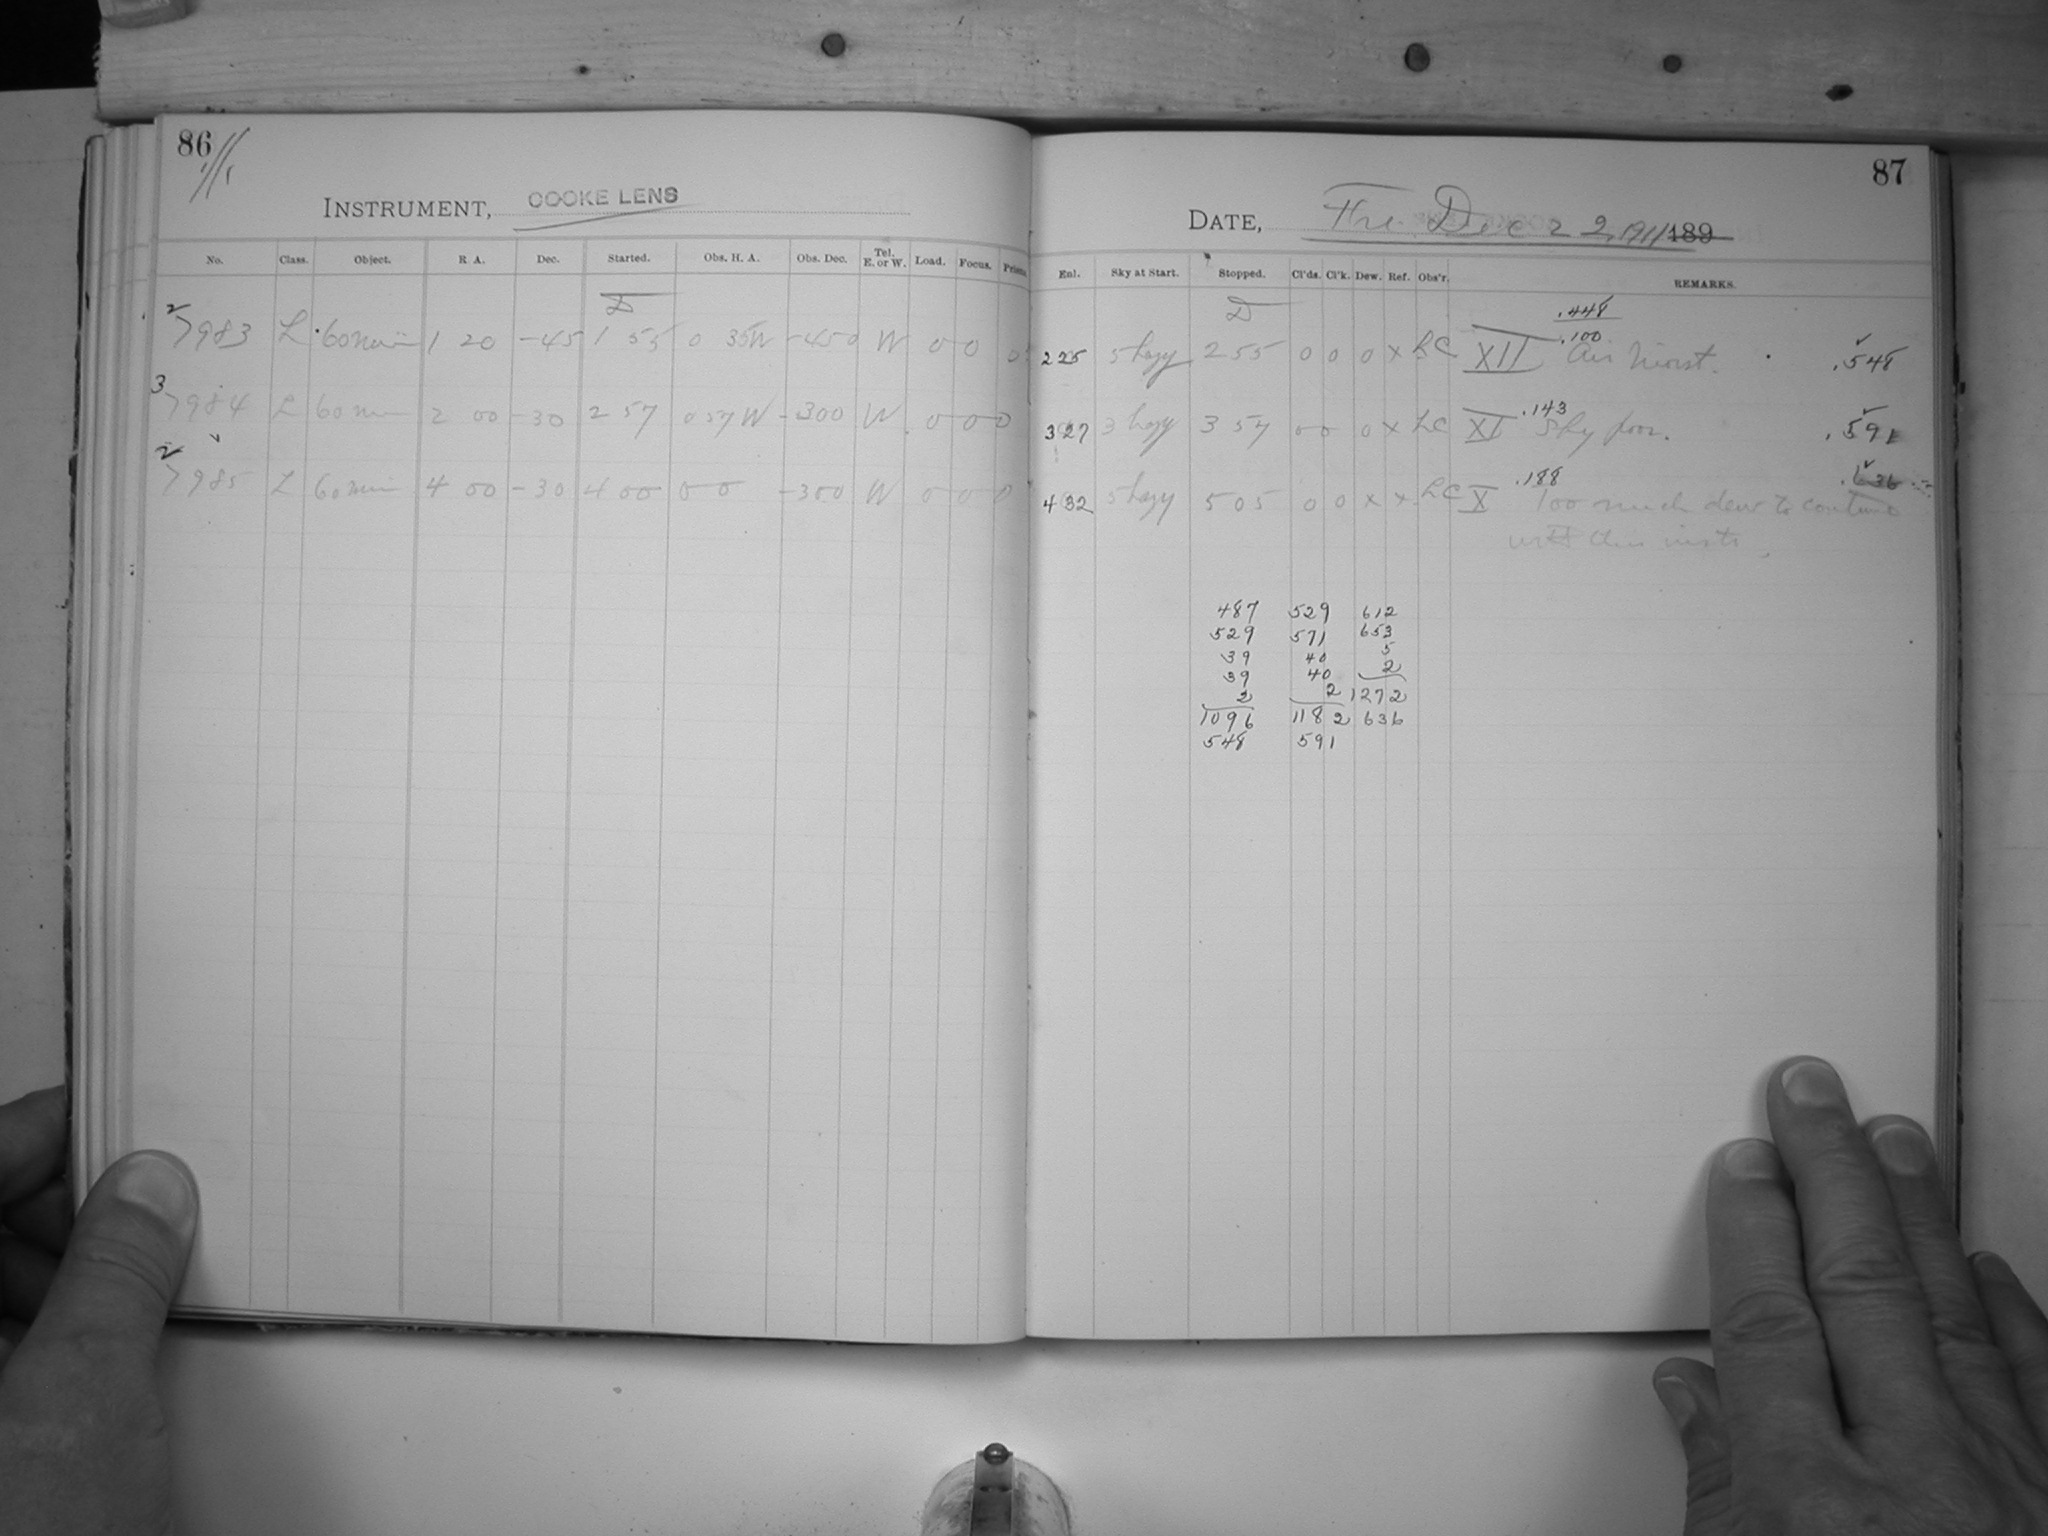 86
INSTRUMENT, COOKE LENS
No. Class. Object. R. A. Dec. Started. Obs. H. A. Obs. Dec. Tel. E. or W. Load. Focus. Prisms
2
7983 L 60 min 1 20 -45 1 55 0 35W -45 0 W 0 0 0
3
7984 L 60 min 2 00 -30 2 57 0 57 W -30 0 W 0 0 0
2
7985 L 60 min 4 00 -30 4 00 0 0 -30 0 W 0 0 0
87
DATE, Fri. Dec 22, 1911 189
Enl. Sky at Start. Stopped. Cl'ds. Cl'k. Dew. Ref. Obs'r. REMARKS.
.448
.100
2 25 5 hazy 2 55 0 0 0 x LC XII Air Moist. .548
.143
3 27 3 hazy 3 57 0 0 0 x LC XI Sky poor. .591
.188
4 32 5 hazy 5 05 0 0 x x LC X Too much dew to continue .636
with this instr.
487 529 612
529 571 653
39 40 5
39 40 2
2 2 1272
1096 1182 636
548 591